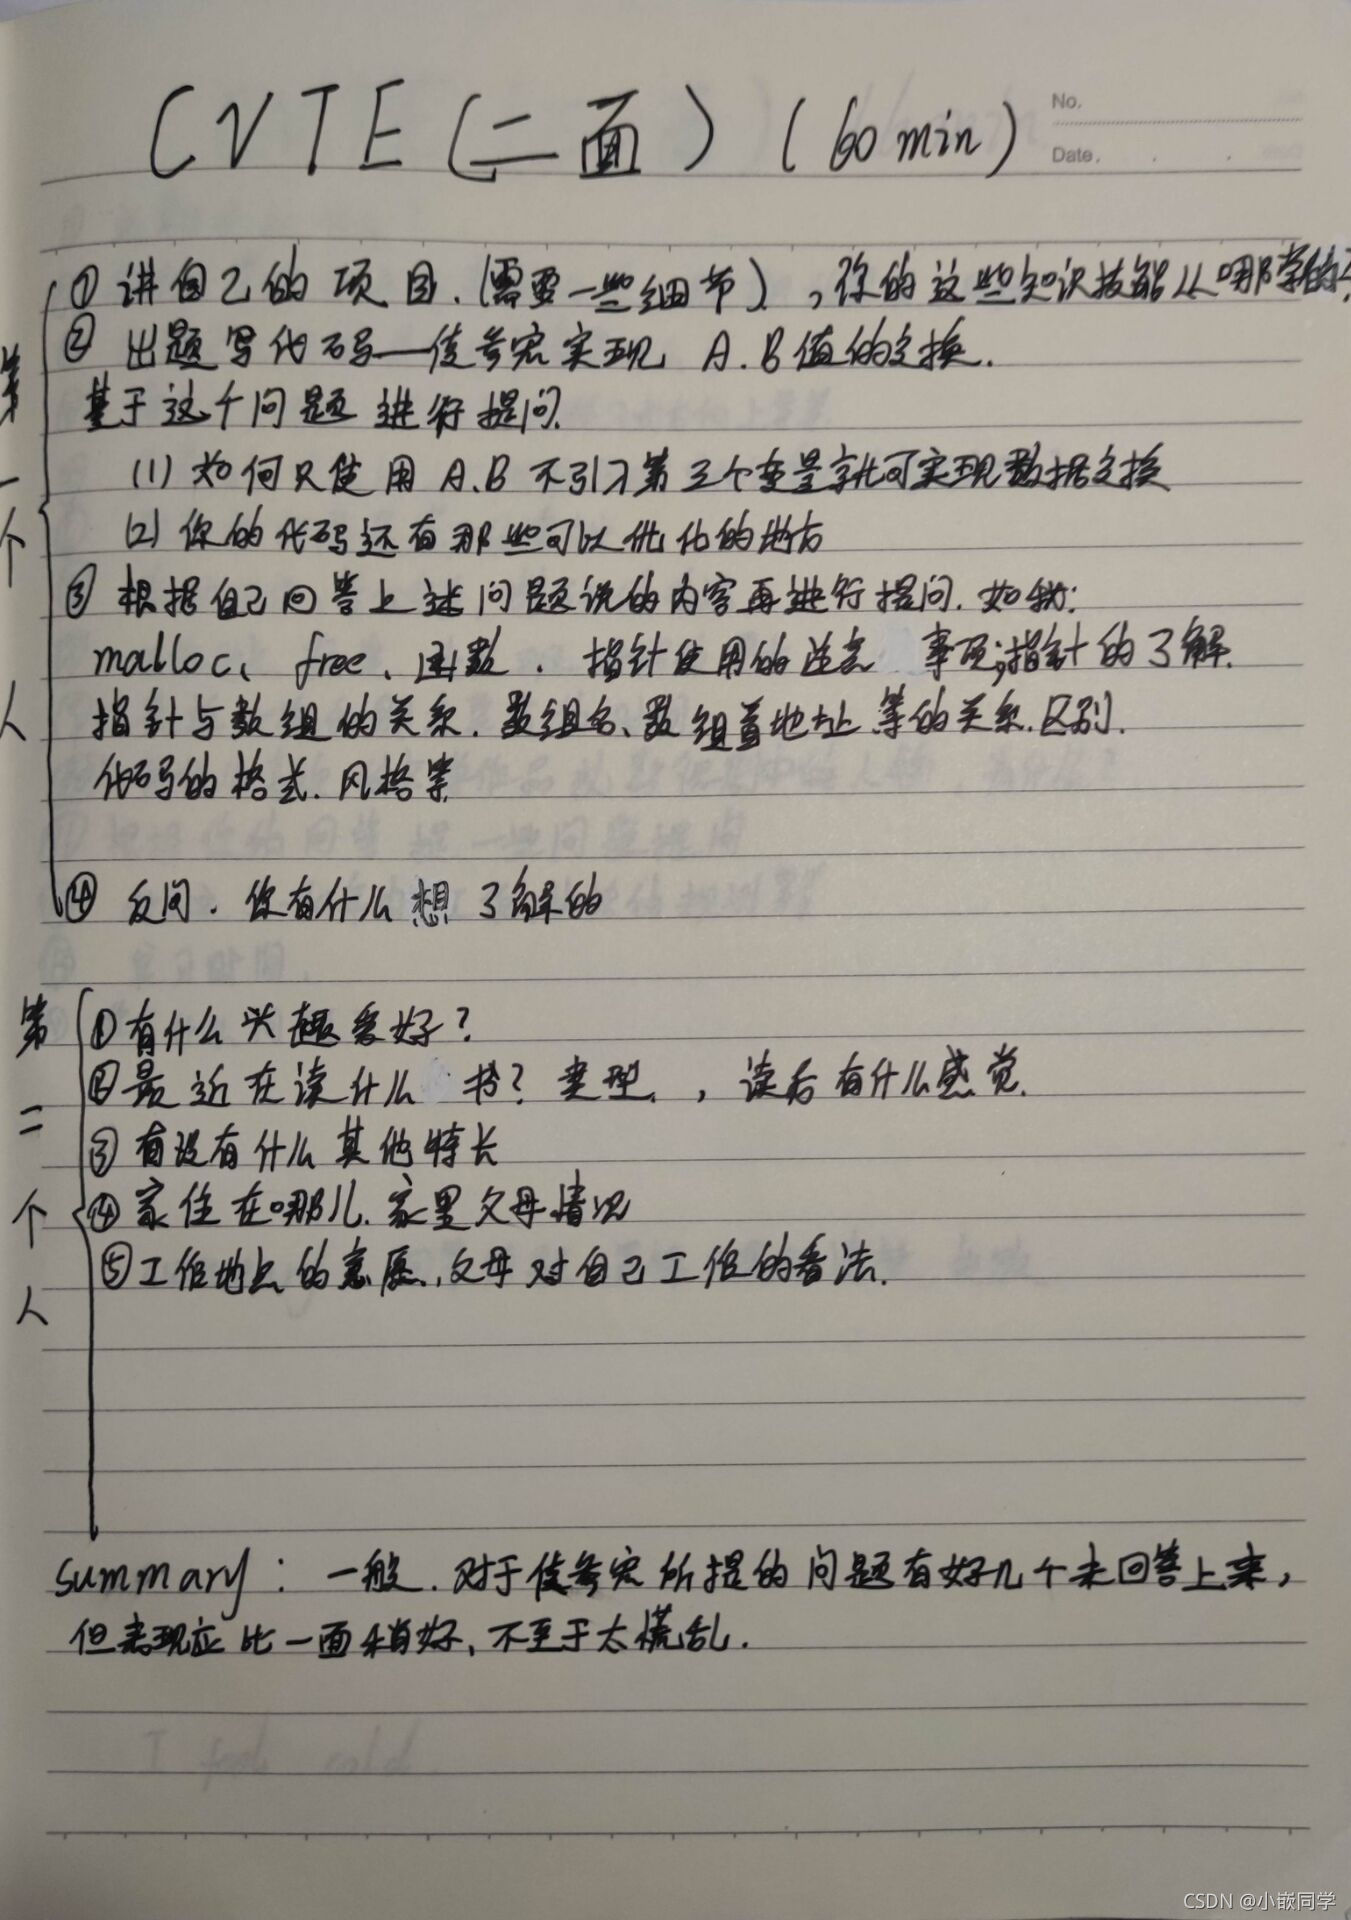 CVTE(二面)(60min)
No.
Date.
第一个人
①讲自己的项目.(需要一些细节),你的这些知识技能从哪学的?
②出题写代码—使参宏实现 A.B值的交换.
基于这个问题进行提问.
(1)如何只使用A.B不引入第三个变量就可实现数据交换
(2)你的代码还有那些可以优化的地方
③根据自己回答上述问题说的内容再进行提问.如钦:
malloc、free、函数.指针使用的注意 事项;指针的了解.
指针与数组的关系.数组名、数组首地址等的关系.区别.
代码的格式.风格等
④反问.你有什么想了解的
第二个人
①有什么兴趣爱好?
②最近在读什么 书?类型.,读后有什么感觉.
③有没有什么其他特长
④家住在哪儿.家里父母情况
⑤工作地点的意愿.,父母对自己工作的看法.
summary:一般.对于使参宏所提的问题有好几个未回答上来,
但表现应比一面稍好,不至于太慌乱.
CSDN @小嵌同学